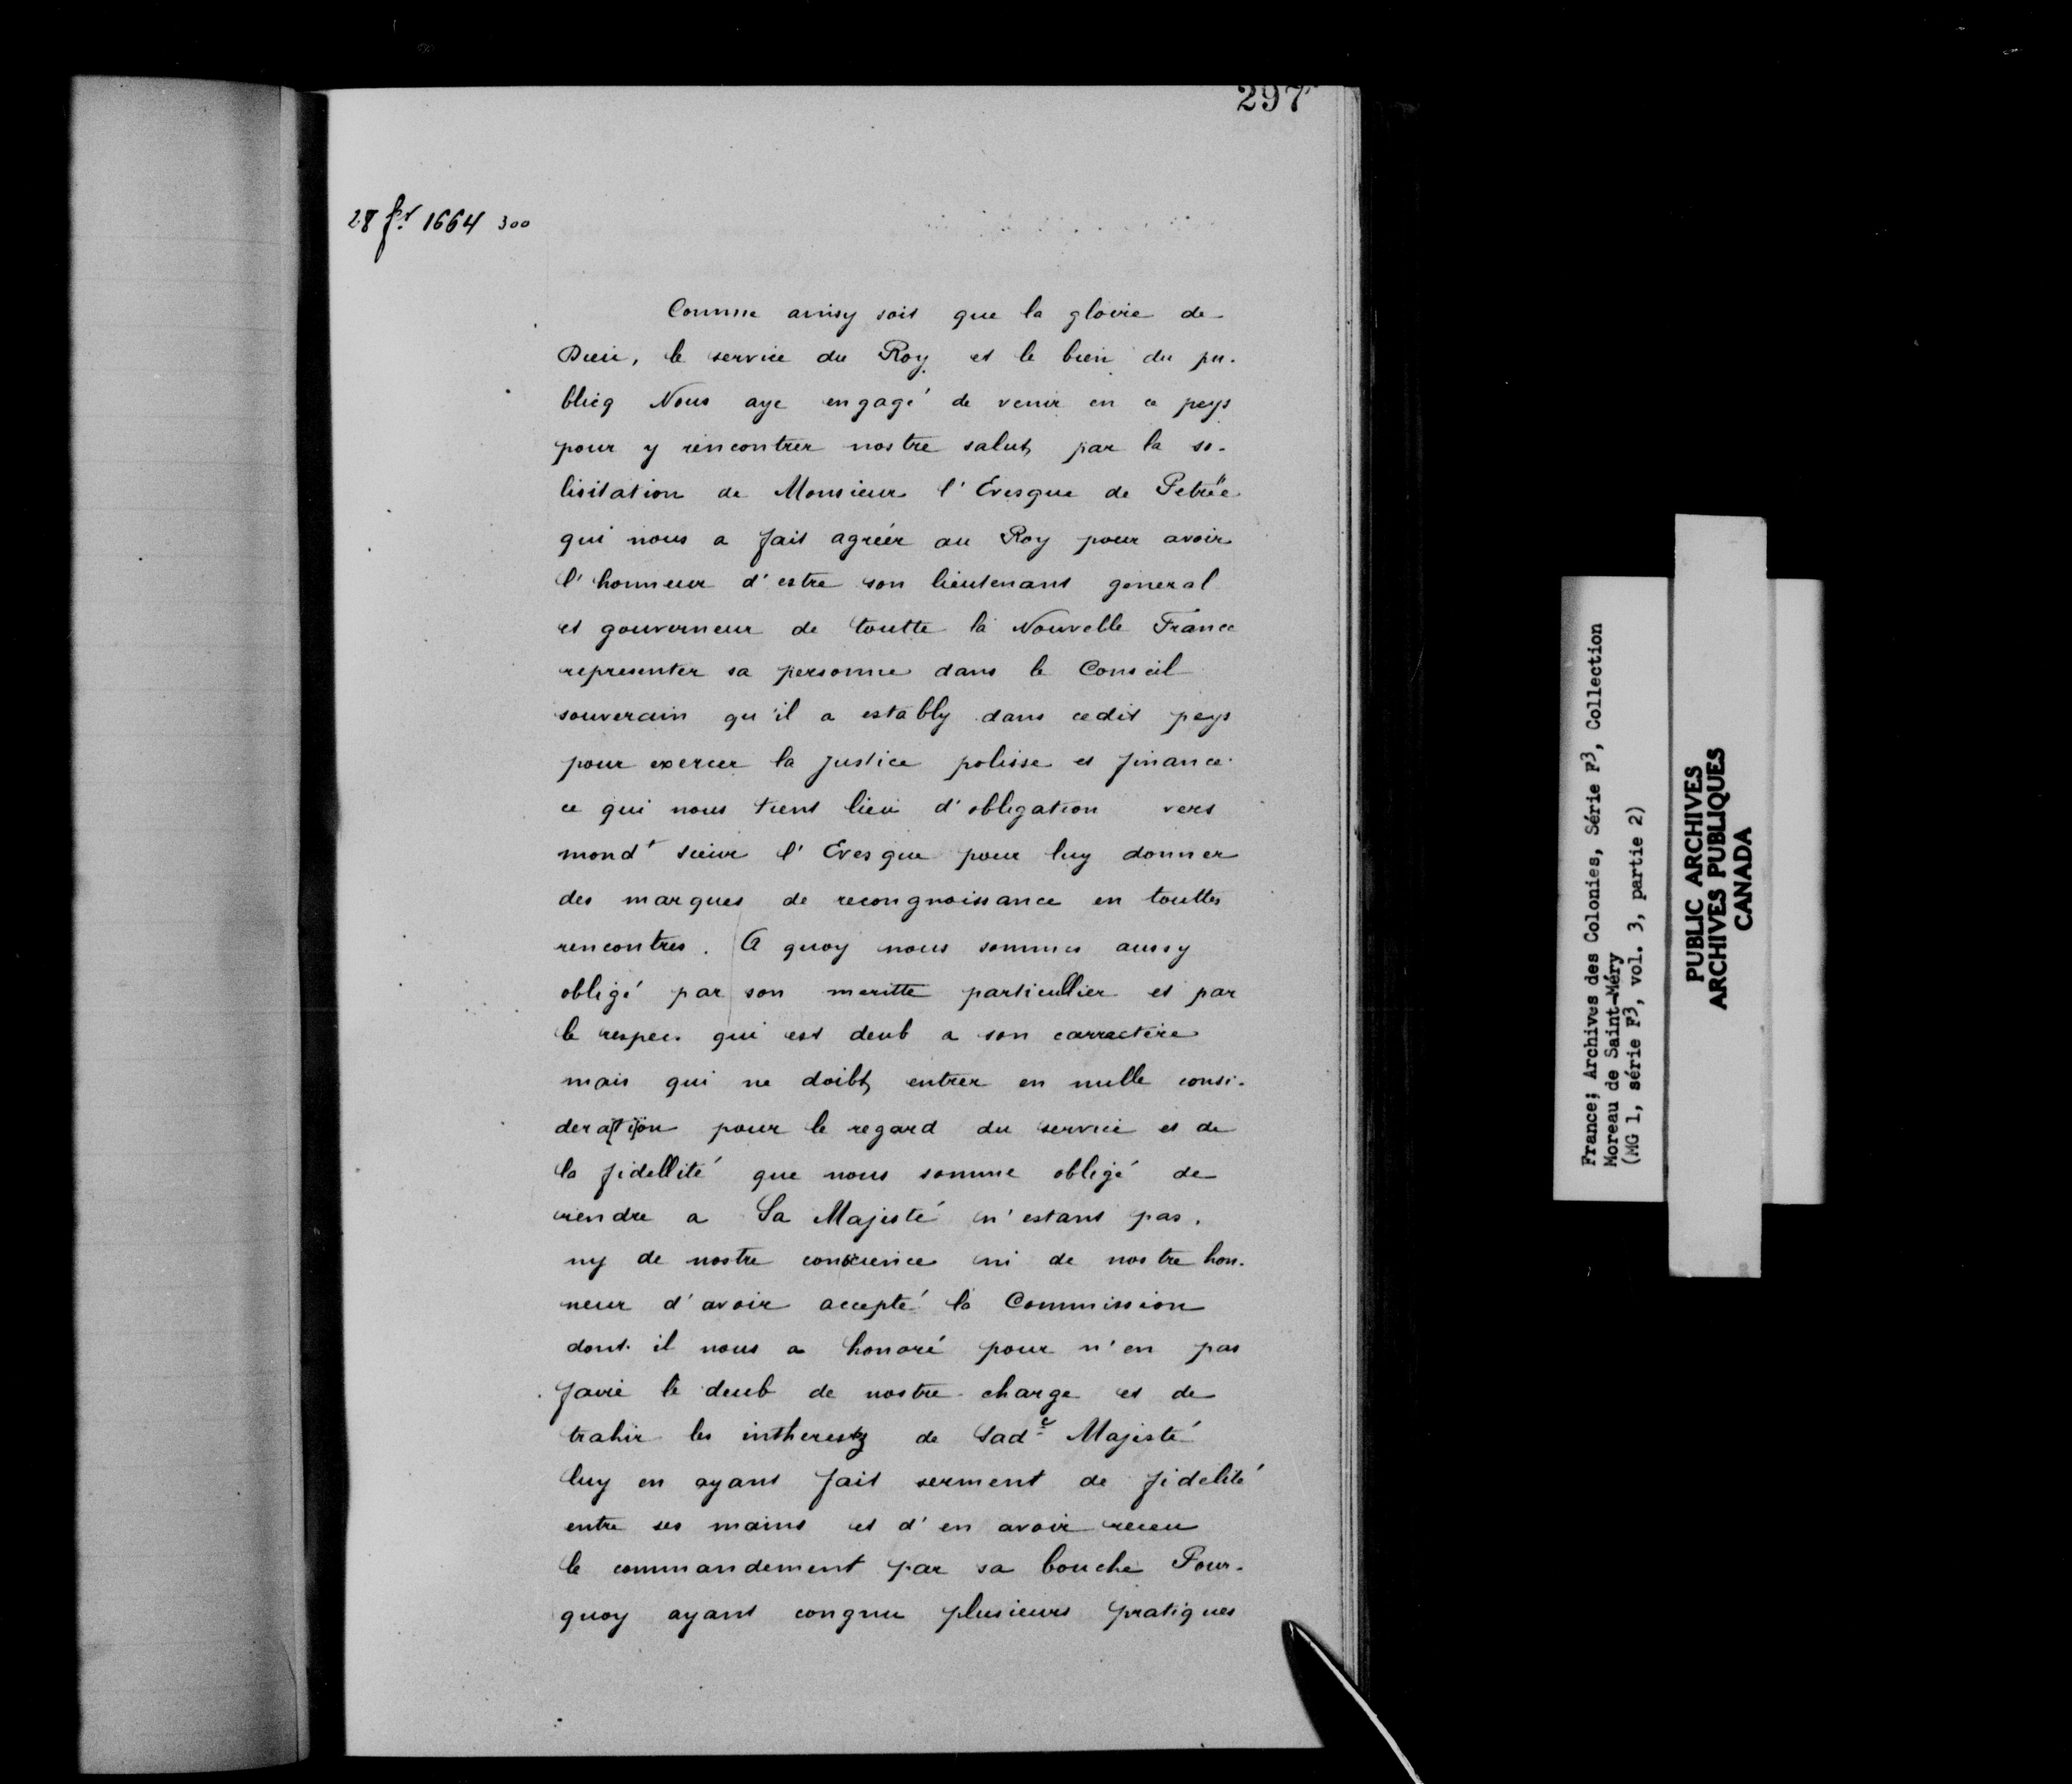 297
28 fer 1664 300
Comme ainsy soit que la gloire de
Dieu, le service du Roy et le bien du pu-
blicq Nous aye engagé de venir en ce peys
pour y rencontrer nostre salut, par la so-
lisitation de Monsieur l'Evesque de Petrée
qui nous a fait agréér au Roy pour avoir
l'honneur d'estre son lieutenant general
et gouverneur de toutte la Nouvelle France
representer sa personne dans le Conseil
souverain qu'il a estably dans cedit peys
pour exercer la justice polisse et finance
ce qui nous tient lieu d'obligation vers
mond t sieur l'Evesque pour luy donner
des marques de recongnoissance en touttes
rencontres. A quoy nous sommes aussy
obligé par son meritte particullier et par
le respec. qui est deub a son carractere
mais qui ne doibt, entrer en nulle consi-
deration pour le regard du service et de
la fidellité que nous somme obligé de
rendre a Sa Majesté n'estant pas.
ny de nostre conscience ni de nostre hon-
neur d'avoir accepté la Commission
dont il nous a honoré pour n'en pas
faire le deub de nostre charge et de
trahir les intherestz de Sad e Majesté
luy en ayant fait serment de fidelité
entre ses mains et d'en avoir receu
le commandement par sa bouche Pour-
quoy ayant congnu plusieurs pratiques
France; Archives des Colonies, Série F3, Collection
Moreau de Saint-Méry
(MG 1, série F3, vol. 3, partie 2)
PUBLIC ARCHIVES
ARCHIVES PUBLIQUES
CANADA